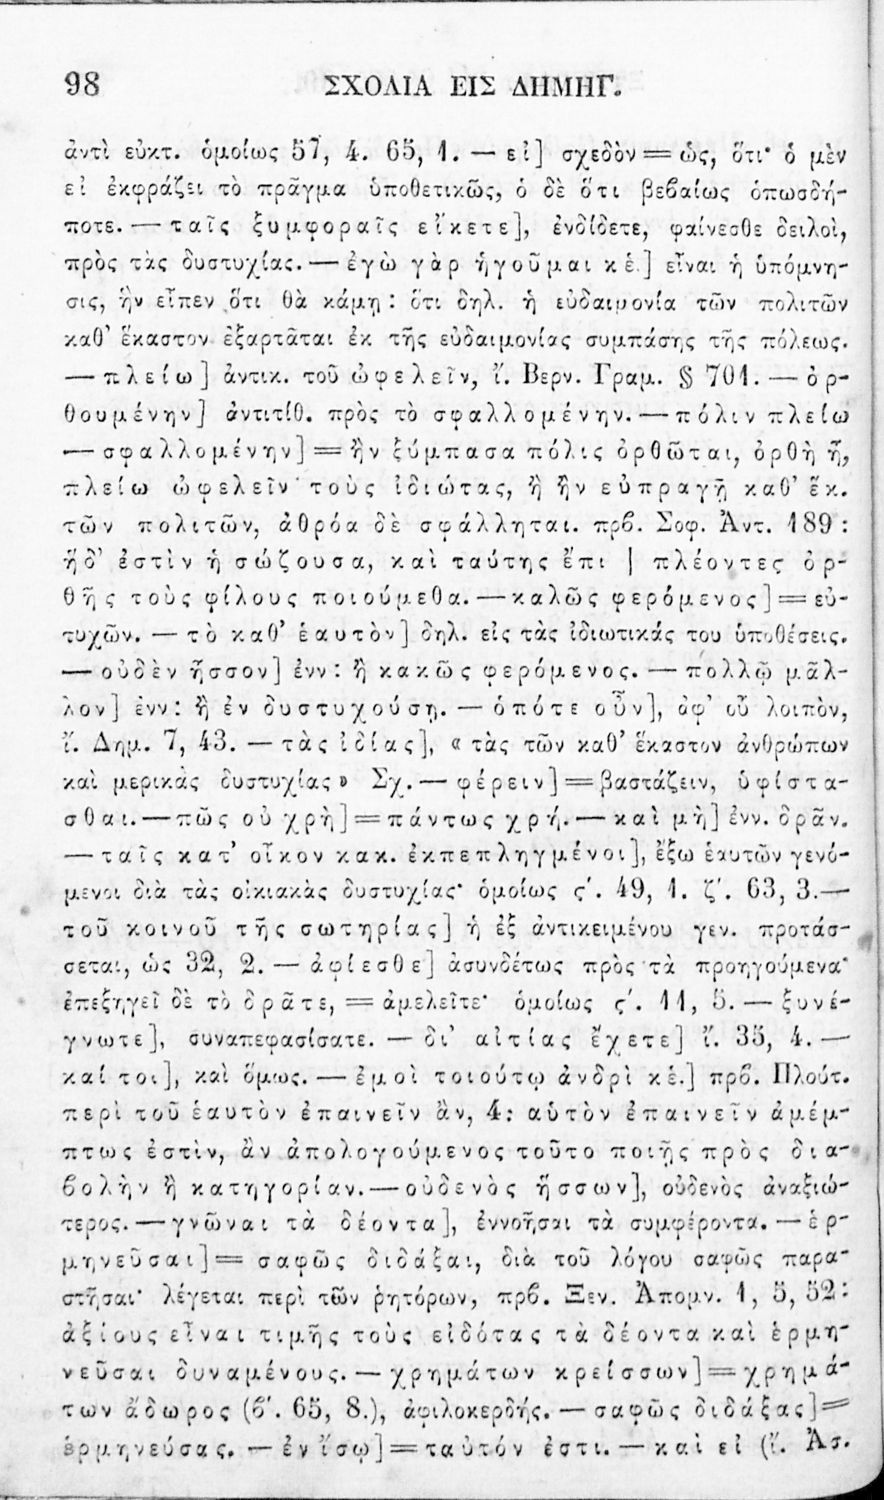 98 ΣΧΟΛΙΑ ΕΙΣ ΔΗΜΗΓ.
ἀντὶ εὐκτ. ὁμοίως 57, 4. 65, 1. — εἰ] σχεδὸν = ὡς, ὅτι· ὁ μὲν
εἰ ἐκφράζει τὸ πρᾶγμα ὑποθετικῶς, ὁ δὲ ὅτι βεβαίως ὁπωσδή-
ποτε. — ταῖς ξυμφοραῖς εἴκετε], ἐνδίδετε, φαίνεσθε δειλοὶ,
πρὸς τὰς δυστυχίας. — ἐγὼ γὰρ ἡγοῦμαι κἑ.] εἶναι ἡ ὑπόμνη-
σις, ἣν εἶπεν ὅτι θὰ κάμῃ: ὅτι δηλ. ἡ εὐδαιμονία τῶν πολιτῶν
καθ’ ἕκαστον ἐξαρτᾶται ἐκ τῆς εὐδαιμονίας συμπάσης τῆς πόλεως.
— πλείω] ἀντικ. τοῦ ὠφελεῖν, ἴ. Βερν. Γραμ. § 701. — ὀρ-
θουμένην] ἀντιτίθ. πρὸς τὸ σφαλλομένην. — πόλιν πλείω
— σφαλλομένην] = ἢν ξύμπασα πόλις ὀρθῶται, ὀρθὴ ᾖ,
πλείω ὠφελεῖν τοὺς ἰδιώτας, ἢ ἢν εὐπραγῇ καθ’ ἕκ.
τῶν πολιτῶν, ἀθρόα δὲ σφάλληται. πρβ. Σοφ. Ἀντ. 189:
ἥδ’ ἐστὶν ἡ σώζουσα, καὶ ταύτης ἔπι | πλέοντες ὀρ-
θῆς τοὺς φίλους ποιούμεθα. — καλῶς φερόμενος] = εὐ-
τυχῶν. — τὸ καθ’ ἑαυτὸν] δηλ. εἰς τὰς ἰδιωτικάς του ὑποθέσεις.
— οὐδὲν ἧσσον] ἐνν: ἢ κακῶς φερόμενος. — πολλῷ μᾶλ-
λον] ἐνν: ἢ ἐν δυστυχούσῃ. — ὁπότε οὖν], ἀφ’ οὗ λοιπὸν,
ἴ. Δημ. 7, 43. — τὰς ἰδίας], « τὰς τῶν καθ’ ἕκαστον ἀνθρώπων
καὶ μερικὰς δυστυχίας» Σχ. — φέρειν] = βαστάζειν, ὑφίστα-
σθαι. — πῶς οὐ χρὴ] = πάντως χρή. — καὶ μὴ] ἐνν. δρᾶν.
— ταῖς κατ’ οἶκον κακ. ἐκπεπληγμένοι], ἔξω ἑαυτῶν γενό-
μενοι διὰ τὰς οἰκιακὰς δυστυχίας· ὁμοίως ς΄. 49, 1. ζ΄. 63, 3. —
τοῦ κοινοῦ τῆς σωτηρίας] ἡ ἐξ ἀντικειμένου γεν. προτάσ-
σεται, ὡς 32, 2. — ἀφίεσθε] ἀσυνδέτως πρὸς τὰ προηγούμενα·
ἐπεξηγεῖ δὲ τὸ δρᾶτε, = ἀμελεῖτε· ὁμοίως ς΄. 11, 5. — ξυνέ-
γνωτε], συναπεφασίσατε. — δι’ αἰτίας ἔχετε] ἴ. 35, 4. —
καί τοι], καὶ ὅμως. — ἐμοὶ τοιούτῳ ἀνδρὶ κἑ.] πρβ. Πλούτ.
περὶ τοῦ ἑαυτὸν ἐπαινεῖν ἂν, 4: αὑτὸν ἐπαινεῖν ἀμέμ-
πτως ἐστὶν, ἂν ἀπολογούμενος τοῦτο ποιῇς πρὸς δια-
βολὴν ἢ κατηγορίαν. — οὐδενὸς ἥσσων], οὐδενὸς ἀναξιώ-
τερος. — γνῶναι τὰ δέοντα], ἐννοῆσαι τὰ συμφέροντα. — ἑρ-
μηνεῦσαι] = σαφῶς διδάξαι, διὰ τοῦ λόγου σαφῶς παρα-
στῆσαι· λέγεται περὶ τῶν ῥητόρων, πρβ. Ξεν. Ἀπομν. 1, 5, 52:
ἀξίους εἶναι τιμῆς τοὺς εἰδότας τὰ δέοντα καὶ ἑρμη-
νεῦσαι δυναμένους. — χρημάτων κρείσσων] = χρημά-
των ἄδωρος (β΄. 65, 8.), ἀφιλοκερδής. — σαφῶς διδάξας] =
ἑρμηνεύσας. — ἐν ἴσῳ] = ταὐτόν ἐστι. — καὶ εἰ (ἴ. Ἀσ.